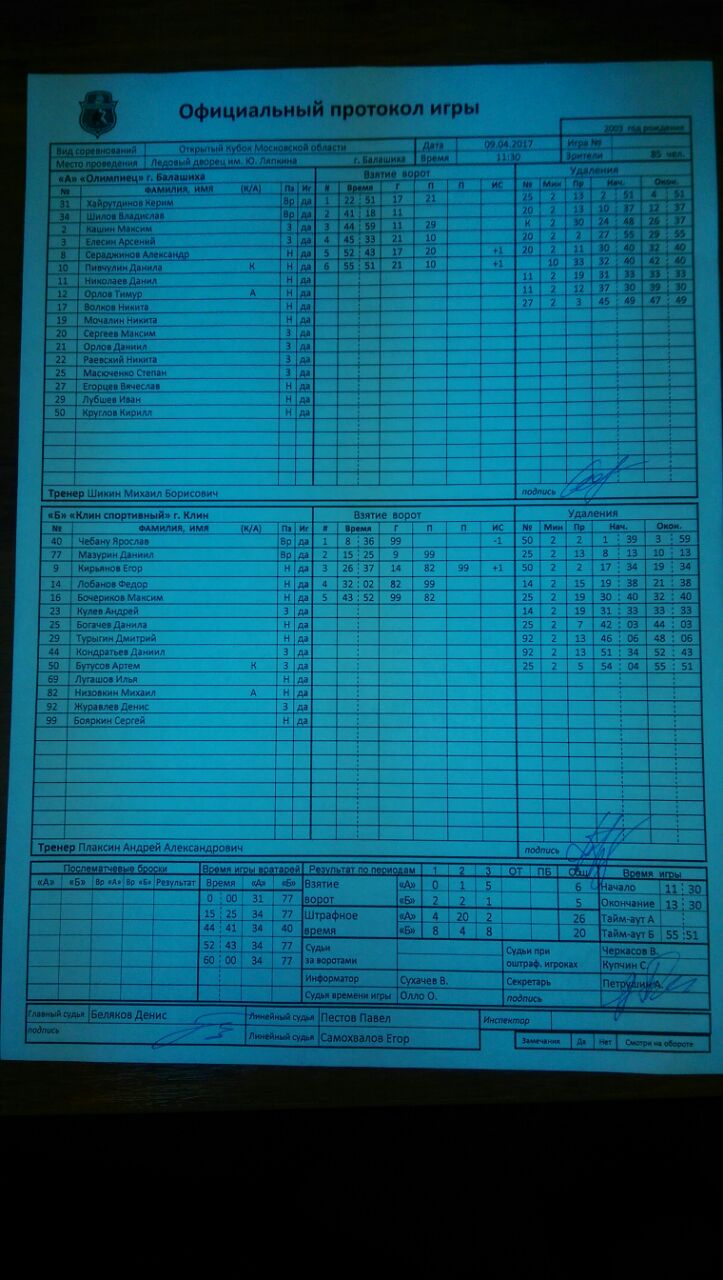 Официальный протокол игры
2003 год рождения
Вид соревнований Открытый Кубок Московской области Дата 09.04.2017 Игра №
Место проведения Ледовый дворец им. Ю. Ляпкина г. Балашиха Время 11:30 Зрители 85 чел.
«А» «Олимпиец» г. Балашиха Взятие ворот Удаления
№ ФАМИЛИЯ, ИМЯ (К/А) Пз Иг # Время Г П П ИС № Мин Пр Нач. Окон.
31 Хайрутдинов Керим Вр да 1 22 51 17 21 25 2 13 2 51 4 51
34 Шилов Владислав Вр да 2 41 18 11 20 2 13 10 37 12 37
2 Кашин Максим З да 3 44 59 11 29 К 2 30 24 48 26 37
3 Елесин Арсений З да 4 45 33 21 10 20 2 2 27 55 29 55
8 Сераджинов Александр Н да 5 52 43 17 20 +1 20 2 11 30 40 32 40
10 Пивчулин Данила К Н да 6 55 51 21 10 +1 10 33 32 40 42 40
11 Николаев Данил Н да 11 2 19 31 33 33 33
12 Орлов Тимур А Н да 11 2 12 37 30 39 30
17 Волков Никита Н да 27 2 3 45 49 47 49
19 Мочалин Никита Н да
20 Сергеев Максим З да
21 Орлов Даниил З да
22 Раевский Никита З да
25 Масюченко Степан З да
27 Егорцев Вячеслав Н да
29 Лубшев Иван Н да
50 Круглов Кирилл Н да
Тренер Шикин Михаил Борисович подпись
«Б» «Клин спортивный» г. Клин Взятие ворот Удаления
№ ФАМИЛИЯ, ИМЯ (К/А) Пз Иг # Время Г П П ИС № Мин Пр Нач. Окон.
40 Чебану Ярослав Вр да 1 8 36 99 -1 50 2 2 1 39 3 59
77 Мазурин Даниил Вр да 2 15 25 9 99 25 2 13 8 13 10 13
9 Кирьянов Егор Н да 3 26 37 14 82 99 +1 50 2 2 17 34 19 34
14 Лобанов Федор Н да 4 32 02 82 99 14 2 15 19 38 21 38
16 Бочериков Максим Н да 5 43 52 99 82 25 2 19 30 40 32 40
23 Кулев Андрей З да 14 2 19 31 33 33 33
25 Богачев Данила Н да 25 2 7 42 03 44 03
29 Турыгин Дмитрий Н да 92 2 13 46 06 48 06
44 Кондратьев Даниил З да 92 2 13 51 34 52 43
50 Бутусов Артем К З да 25 2 5 54 04 55 51
69 Лугашов Илья Н да
82 Низовкин Михаил А Н да
92 Журавлев Денис З да
99 Бояркин Сергей Н да
Тренер Плаксин Андрей Александрович подпись
Послематчевые броски Время игры вратарей Результат по периодам 1 2 3 ОТ ПБ Общ Время игры
«А» «Б» Вр «А» Вр «Б» Результат Время «А» «Б» Взятие ворот «А» 0 1 5 6 Начало 11 30
0 00 31 77 «Б» 2 2 1 5 Окончание 13 30
15 25 34 77 Штрафное время «А» 4 20 2 26 Тайм-аут А
44 41 34 40 «Б» 8 4 8 20 Тайм-аут Б 55 51
52 43 34 77 Судьи за воротами Судьи при оштраф. игроках Черкасов В.
60 00 34 77 Купчин С.
Информатор Сухачев В. Секретарь Петрушин А.
Судья времени игры Олло О. подпись
Главный судья Беляков Денис Линейный судья Пестов Павел Инспектор
подпись Линейный судья Самохвалов Егор Замечания Да Нет Смотри на обороте